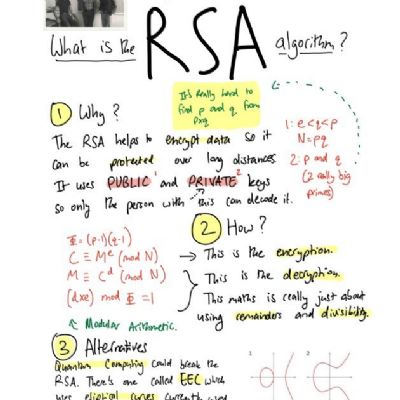 What is the RSA algorithm?
It's really hard to
find p and q from
pxq
1 Why?
The RSA helps to encrypt data so it
can be protected over long distances
It uses PUBLIC¹ and PRIVATE² keys
so only the person with this can decode it.
1: e<q<p
N=pq
2: p and q
(2 really big
primes)
2 How?
Φ=(p-1)(q-1)
C ≡ Mᵉ (mod N)
M ≡ Cᵈ (mod N)
(dxe) mod Φ = 1
→ This is the encryption.
This is the decryption.
This maths is really just about
using remainders and divisibility.
Modular Arithmetic.
3 Alternatives
Quantum Computing could break the
RSA. There's one called EEC which
uses eliptical curves currently used
1
2